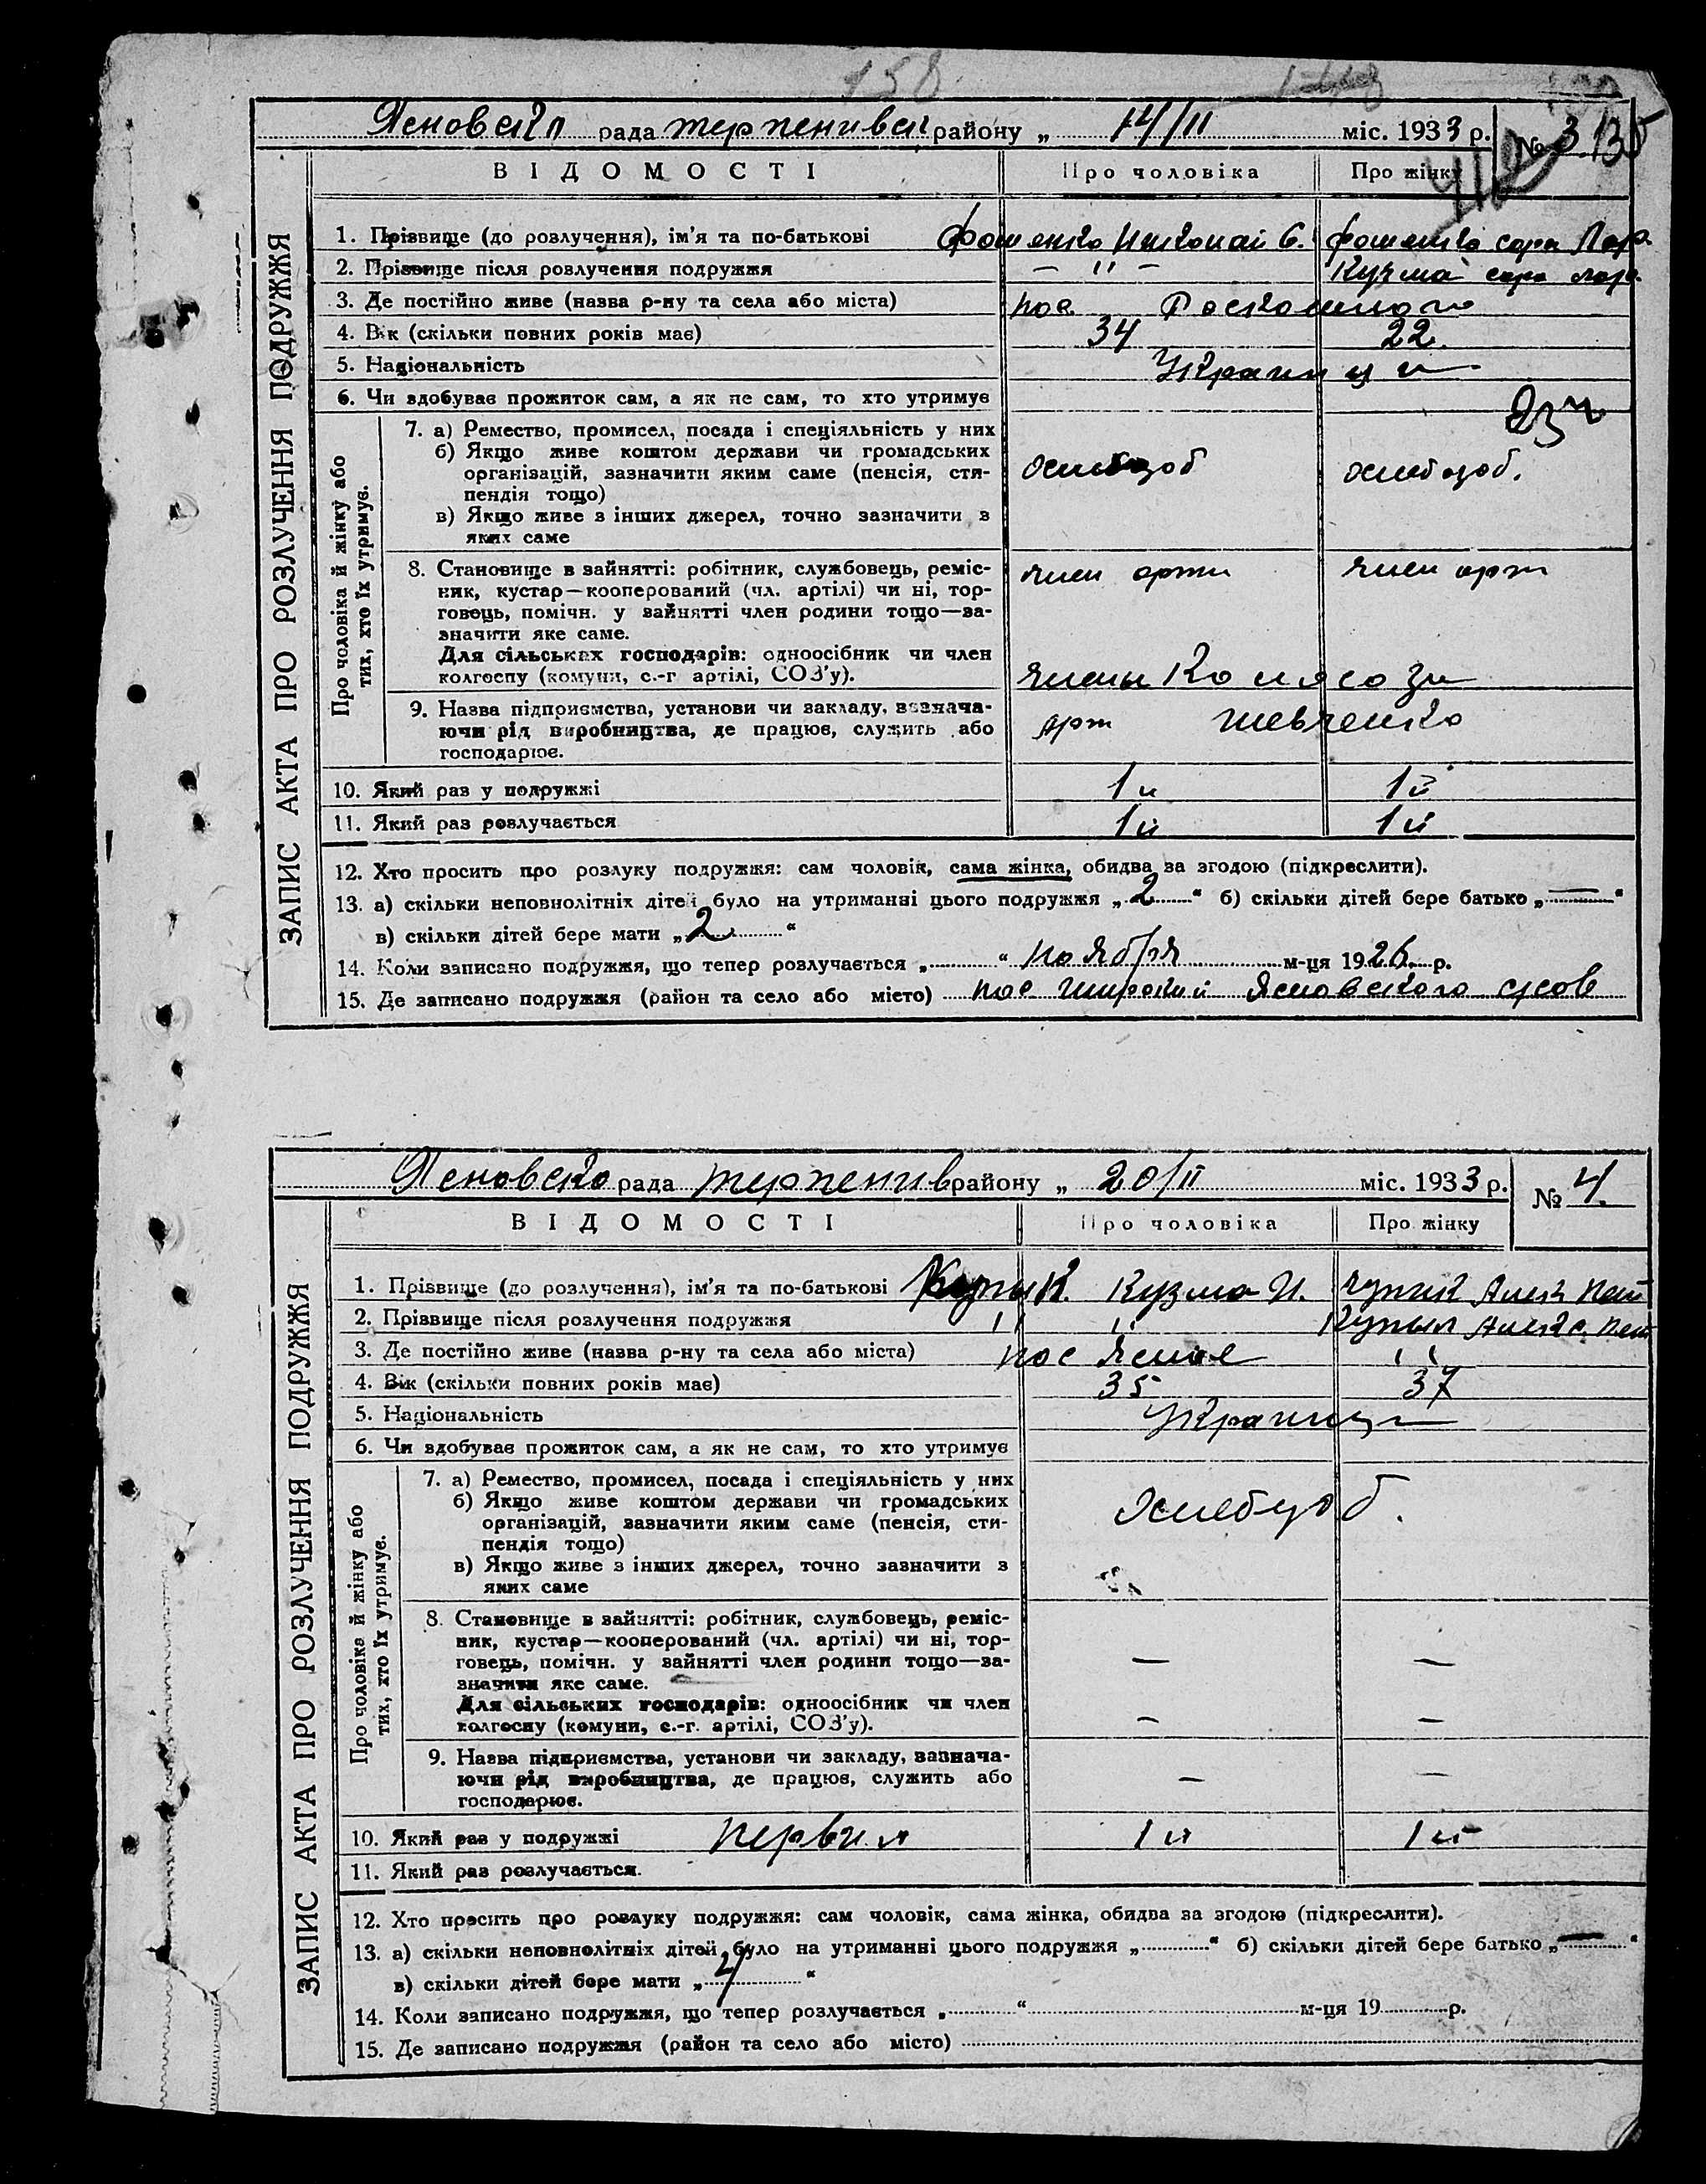 158
Ясновска рада терпенивск району „ 14/II міс. 1933 р. № 3 135
ВІДОМОСТІ Про чоловіка Про жінку
ЗАПИС АКТА ПРО РОЗЛУЧЕННЯ ПОДРУЖЖЯ
1. Прізвище (до розлучення), ім'я та по-батькові Фоменко Николай С. Фоменко сара Лар.
2. Прізвище після розлучення подружжя — " — Кузма сара лар.
3. Де постійно живе (назва р-ну та села або міста) пос.
4. Вік (скільки повних років має) 34 22.
5. Національність Украинци
6. Чи здобуває прожиток сам, а як не сам, то хто утримує
Про чоловіка й жінку або тих, хто їх утримує.
7. а) Ремество, промисел, посада і спеціяльність у них
б) Якщо живе коштом держави чи громадських
організацій, зазначити яким саме (пенсія, сти- хлебороб хлебороб.
пендія тощо)
в) Якщо живе з інших джерел, точно зазначити з
яких саме
8. Становище в зайнятті: робітник, службовець, реміс- член арти член арт
ник, кустар—кооперований (чл. артілі) чи ні, тор-
говець, помічн. у зайнятті член родини тощо—за-
значити яке саме.
Для сільських господарів: одноосібник чи член
колгоспу (комуни, с.-г артілі, СОЗ'у). члены
9. Назва підприємства, установи чи закладу, зазнача-
ючи рід виробництва, де працює, служить або арт шевченко
господарює.
10. Який раз у подружжі 1й 1й
11. Який раз розлучається 1й 1й
12. Хто просить про розлуку подружжя: сам чоловік, сама жінка, обидва за згодою (підкреслити).
13. а) скільки неповнолітніх дітей було на утриманні цього подружжя „ 2 “ б) скільки дітей бере батько „ — “
в) скільки дітей бере мати „ 2 “
14. Коли записано подружжя, що тепер розлучається „ “ ноября м-ця 1926 р.
15. Де записано подружжя (район та село або місто) пос широкий Ясновского срсов
Ясновско рада терпенив району „ 20/II міс. 1933 р. № 4.
ВІДОМОСТІ Про чоловіка Про жінку
ЗАПИС АКТА ПРО РОЗЛУЧЕННЯ ПОДРУЖЖЯ
1. Прізвище (до розлучення), ім'я та по-батькові Кузма И.
2. Прізвище після розлучення подружжя " "
3. Де постійно живе (назва р-ну та села або міста) пос Ясное "
4. Вік (скільки повних років має) 35 37
5. Національність Украинци
6. Чи здобуває прожиток сам, а як не сам, то хто утримує
Про чоловіка й жінку або тих, хто їх утримує.
7. а) Ремество, промисел, посада і спеціяльність у них
б) Якщо живе коштом держави чи громадських
організацій, зазначити яким саме (пенсія, сти- Хлебороб.
пендія тощо)
в) Якщо живе з інших джерел, точно зазначити з
яких саме
8. Становище в зайнятті: робітник, службовець, реміс-
ник, кустар—кооперований (чл. артілі) чи ні, тор-
говець, помічн. у зайнятті член родини тощо—за- — —
значити яке саме.
Для сільських господарів: одноосібник чи член
колгоспу (комуни, с.-г. артілі, СОЗ'у). — —
9. Назва підприємства, установи чи закладу, зазнача-
ючи рід виробництва, де працює, служить або — —
господарює.
10. Який раз у подружжі первил 1й 1й
11. Який раз розлучається.
12. Хто просить про розлуку подружжя: сам чоловік, сама жінка, обидва за згодою (підкреслити).
13. а) скільки неповнолітніх дітей було на утриманні цього подружжя „ “ б) скільки дітей бере батько „ — “
в) скільки дітей бере мати „ 4 “
14. Коли записано подружжя, що тепер розлучається „ “ м-ця 19 р.
15. Де записано подружжя (район та село або місто)